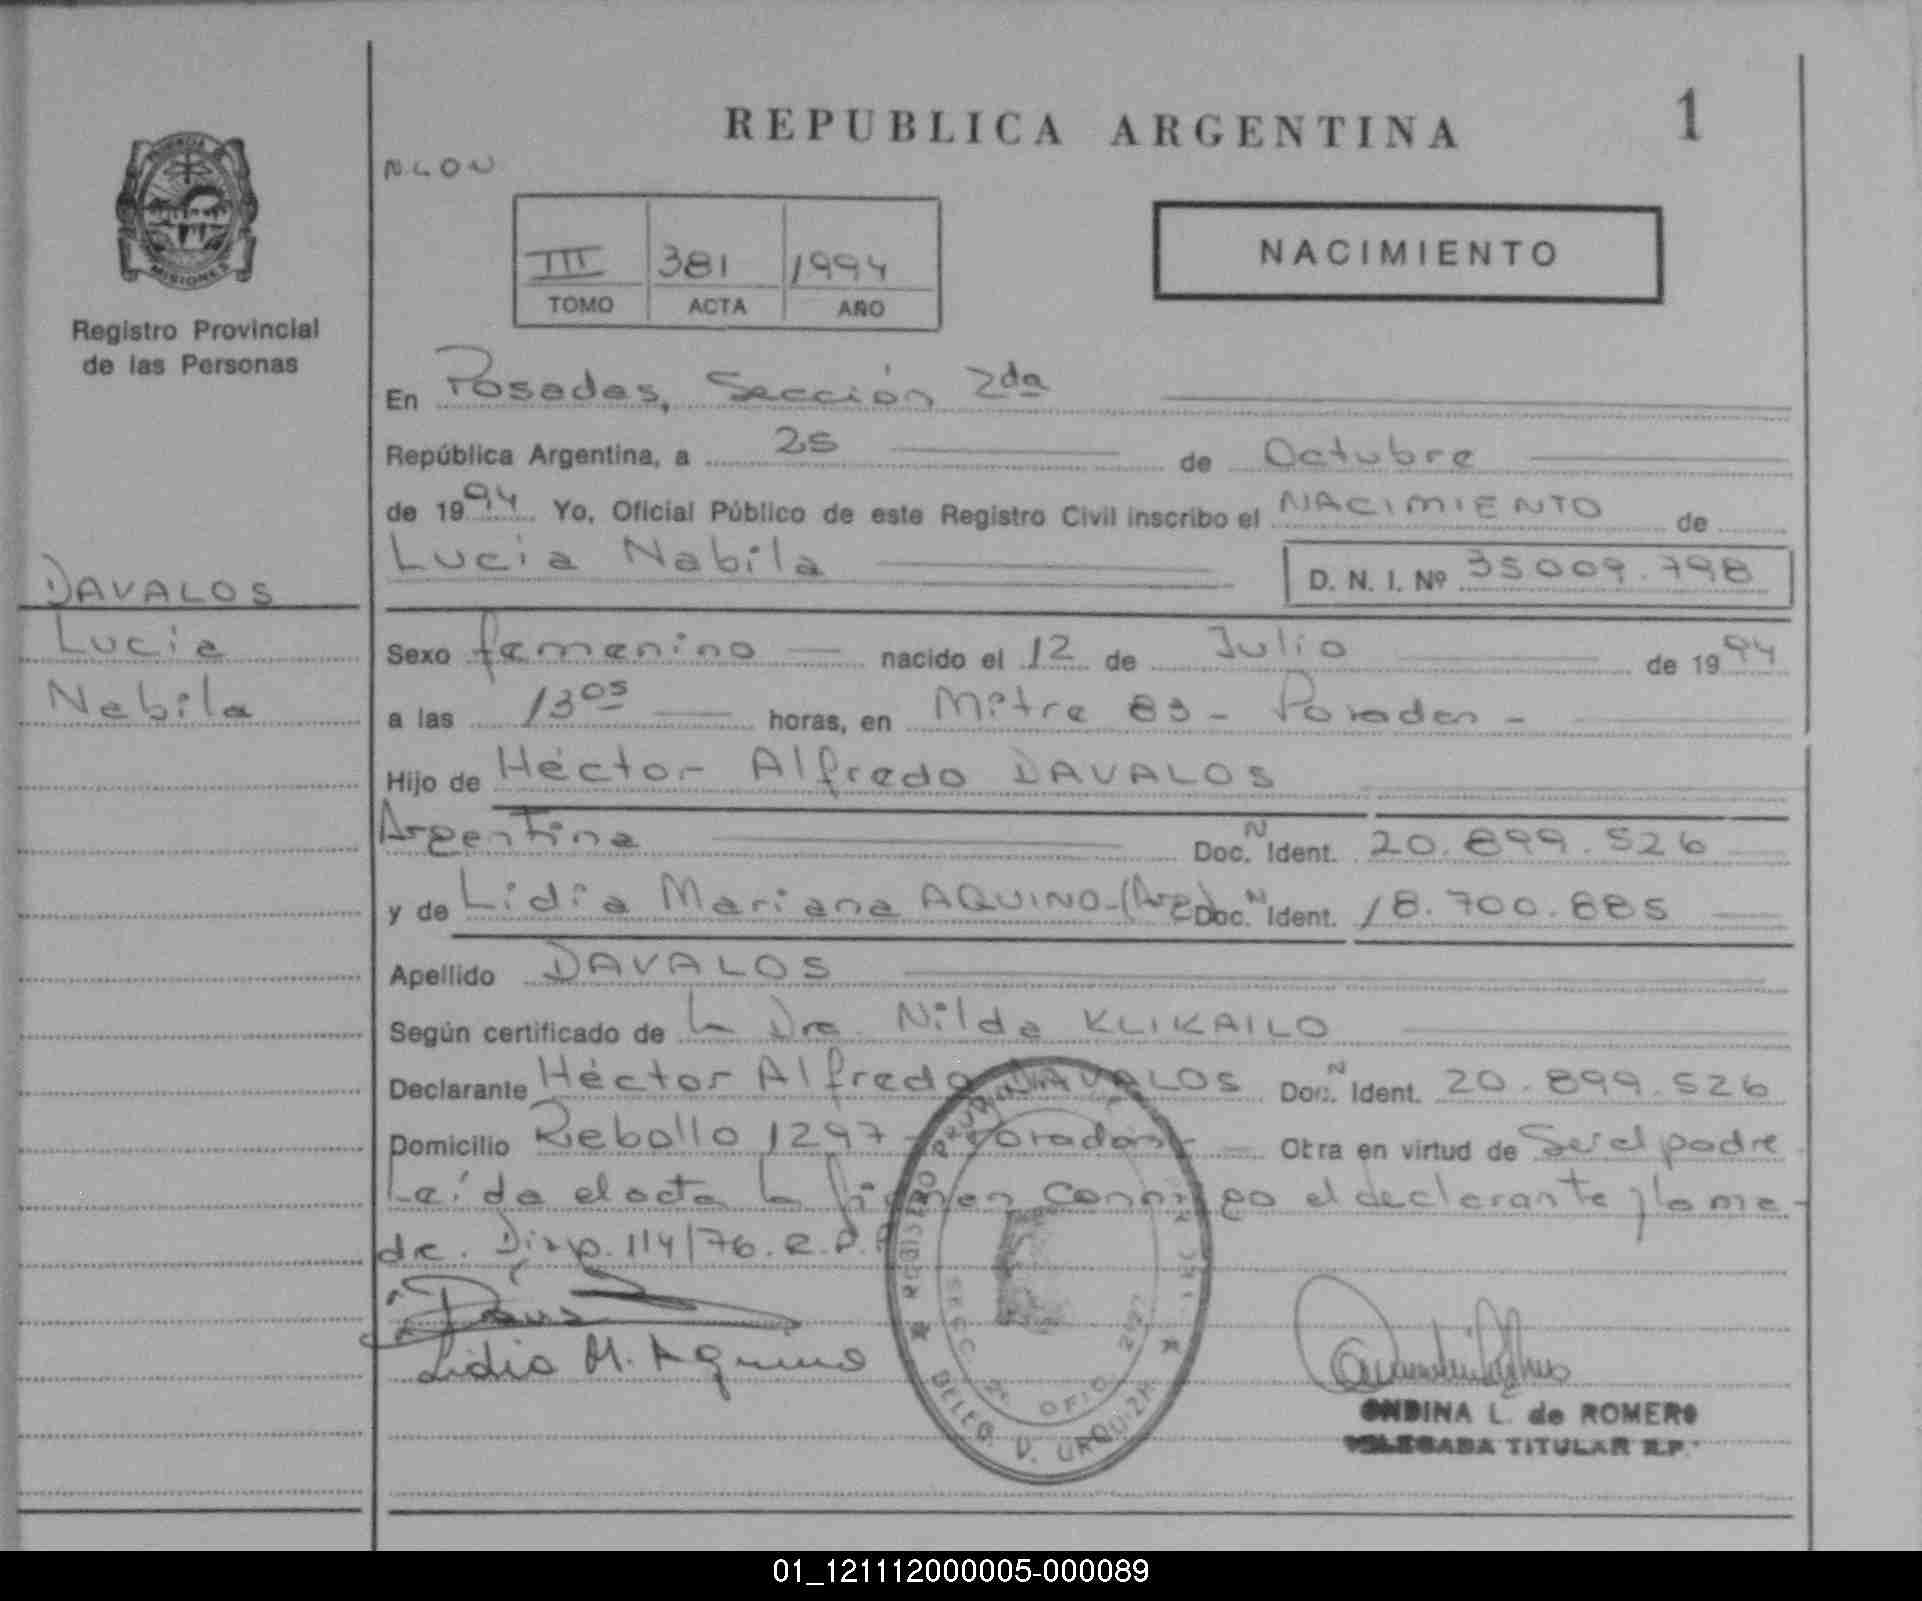 REPUBLICA ARGENTINA
1
PROVINCIA DE
MISIONES
Registro Provincial
de las Personas
III 381 1994
TOMO ACTA AÑO
NACIMIENTO
En Posadas, Sección 2da
República Argentina, a 25 de Octubre
de 1994 Yo, Oficial Público de este Registro Civil inscribo el NACIMIENTO de
Lucía Nabila D. N. I. Nº 35009.798
DAVALOS
Lucía
Nabila
Sexo femenino nacido el 12 de Julio de 1994
a las 13 05 horas, en Mitre 83 - Posadas -
Hijo de Héctor Alfredo DAVALOS
Argentina Doc. N Ident. 20.899.526
y de Lidia Mariana AQUINO-(Arg) Doc. N Ident. 18.700.885
Apellido DAVALOS
Según certificado de la Dra. Nilda KLIKAILO
Declarante Héctor Alfredo DAVALOS Doc. N Ident. 20.899.526
Domicilio Rebollo 1297 - Posadas - Otra en virtud de Ser el padre
Leída el acta la firman conmigo el declarante y la ma-
dre. Disp. 114/76. R.P.P
Lidia M. Aquino
REGISTRO PROVINCIAL DE LAS PERSONAS
SECC. 2ª OFIC. 2227
DELEG. V. URQUIZA
ONDINA L. de ROMERO
DELEGADA TITULAR R.P.
01_121112000005-000089